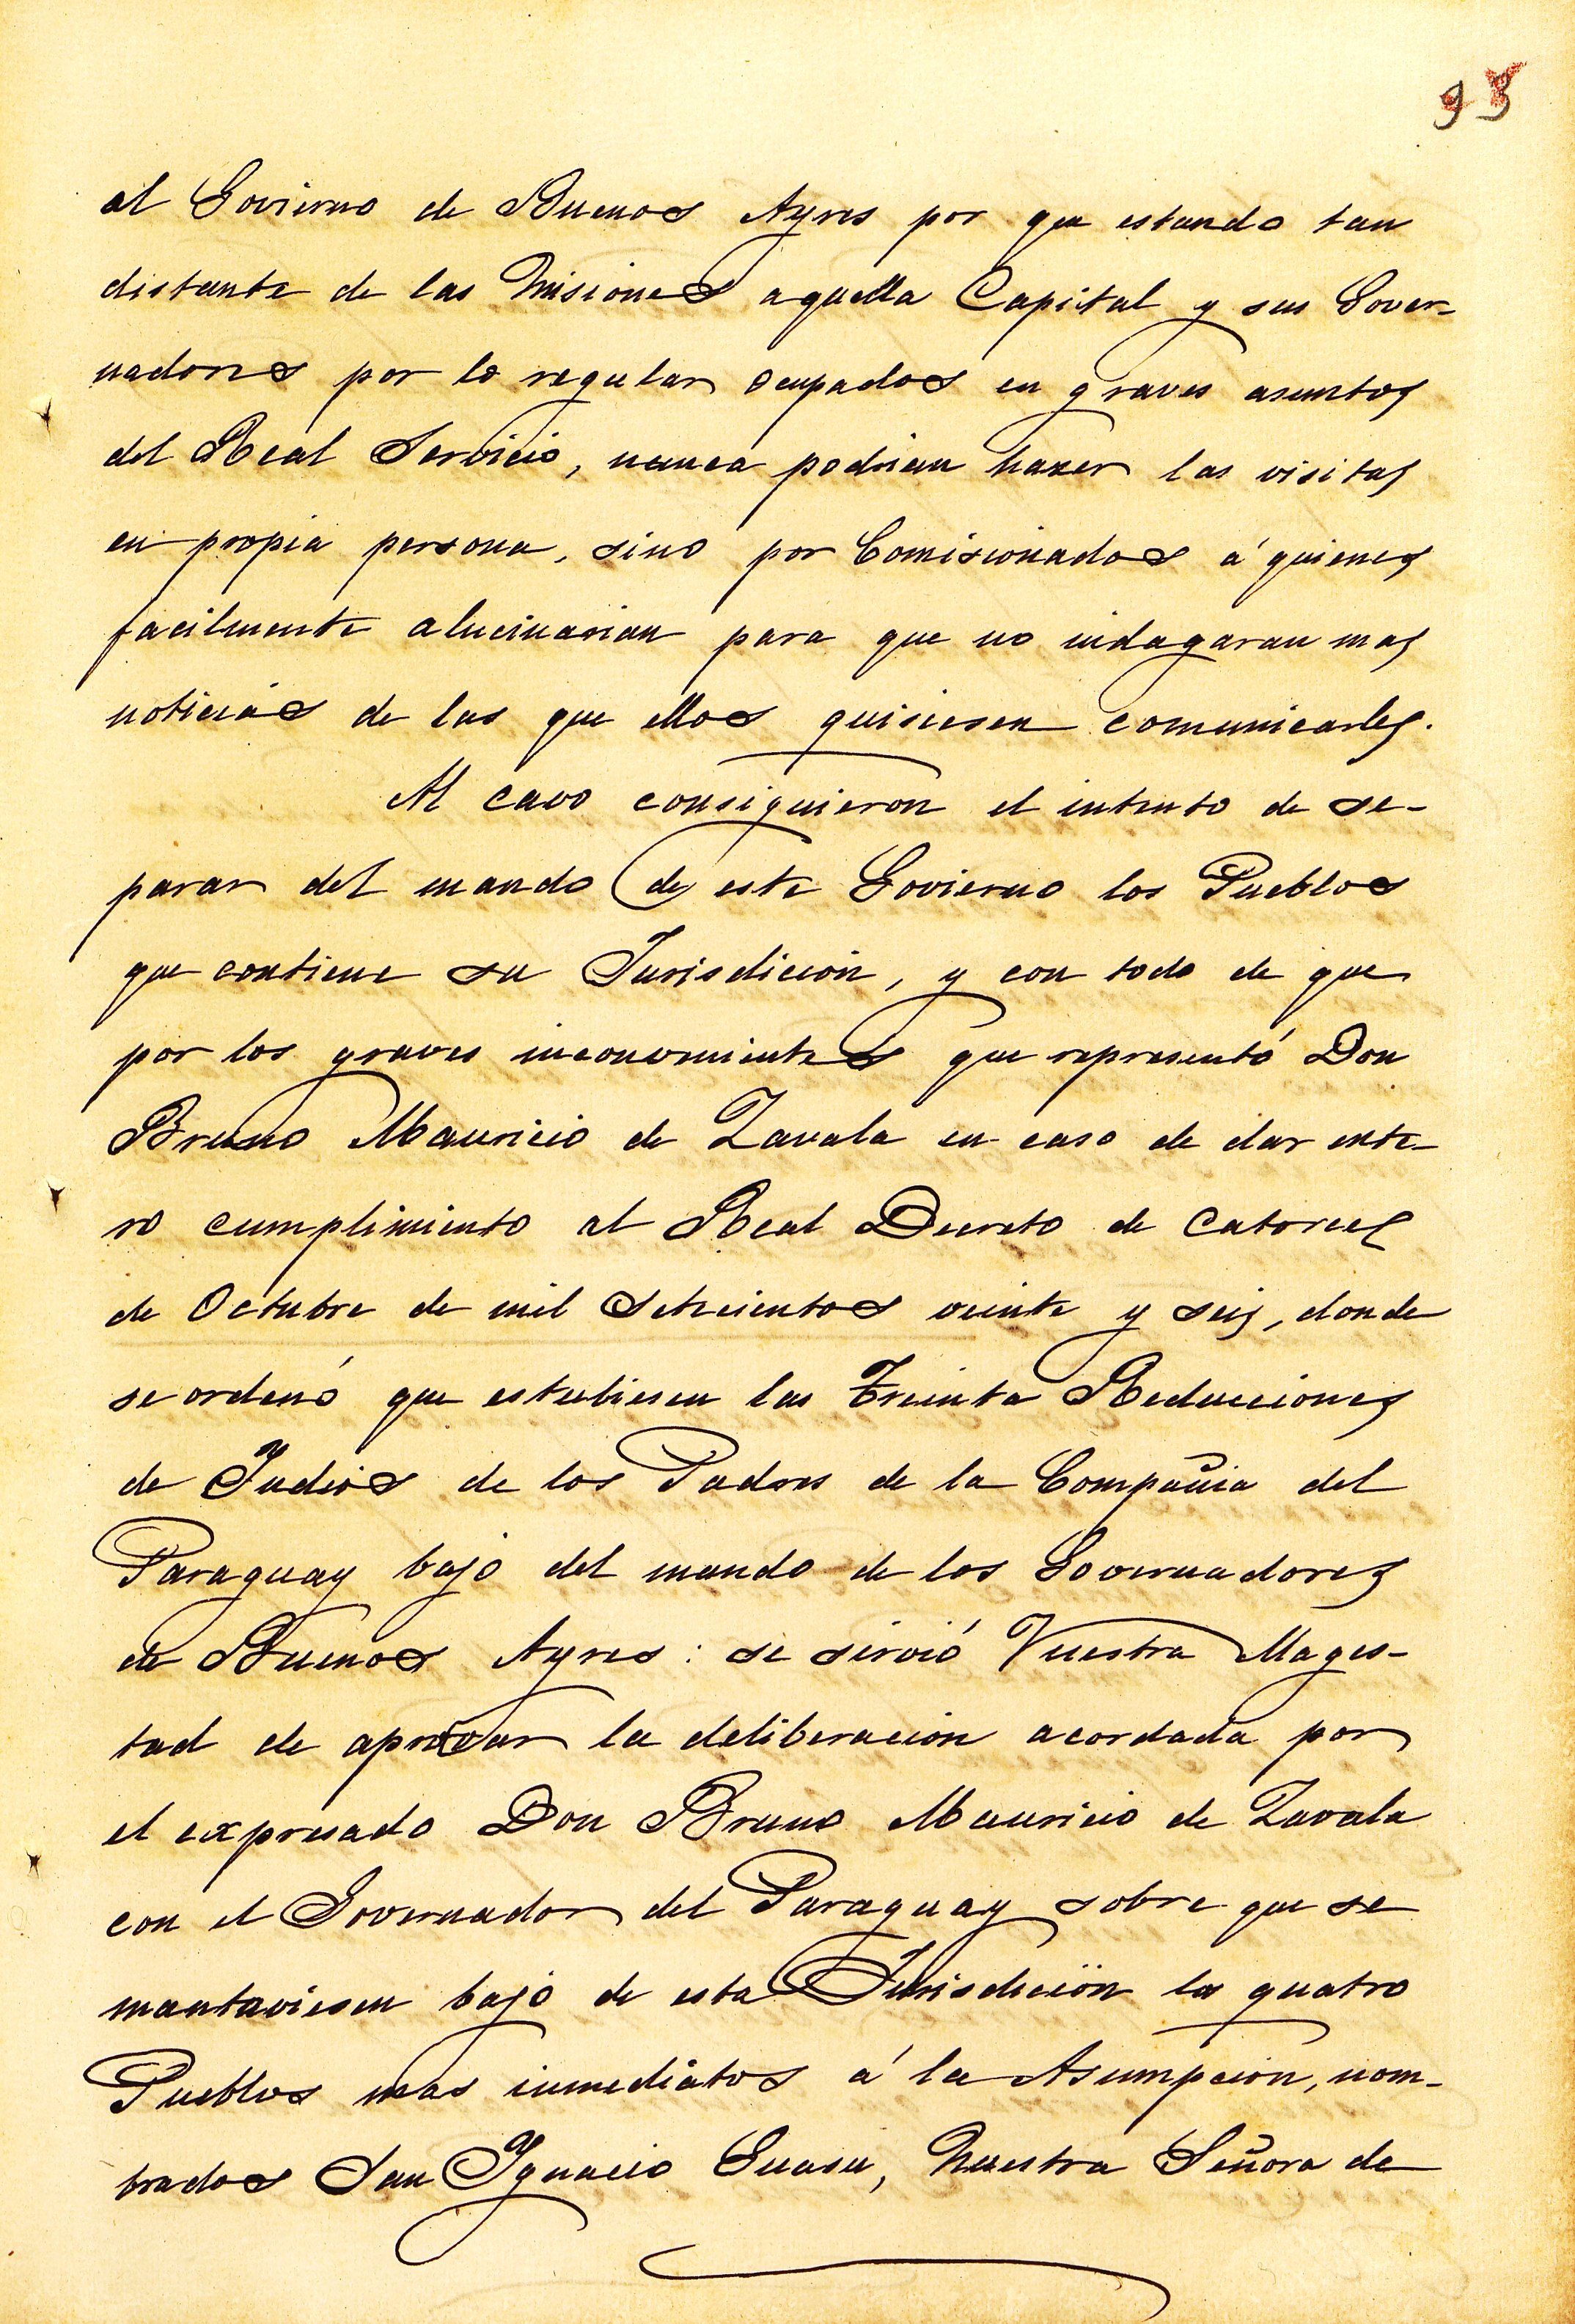 93
al Govierno de Buenos Ayres por que estando tan
distante de las Misiones aquella Capital y sus Gover-
nadores por lo regular ocupados en graves asuntos
del Real Servicio, nunca podrian hazer las visitas
en propia persona, sino por Comisionados á quienes
facilmente alucinarian para que no indagaran mas
noticias de las que ellos quisiesen comunicarles.
Al cavo consiguieron el intento de se-
parar del mando de este Govierno los Pueblos
que contiene su Jurisdicion, y con todo de que
por los graves inconvenientes que representó Don
Bruno Mauricio de Zavala en caso de dar ente-
ro cumplimiento al Real Decreto de Catorce
de Octubre de mil setecientos veinte y seis, donde
se ordenó que estubiesen las Treinta Reducciones
de Indios de los Padres de la Compañia del
Paraguay bajo del mando de los Governadores
de Buenos Ayres: se sirvió Vuestra Mages-
tad de aprovar la deliberacion acordada por
el expresado Don Bruno Mauricio de Zavala
con el Governador del Paraguay sobre que se
mantuviesen bajo de esta Jurisdicion los quatro
Pueblos mas inmediatos á la Asumpcion, nom-
brados San Ignacio Guasu, Nuestra Señora de